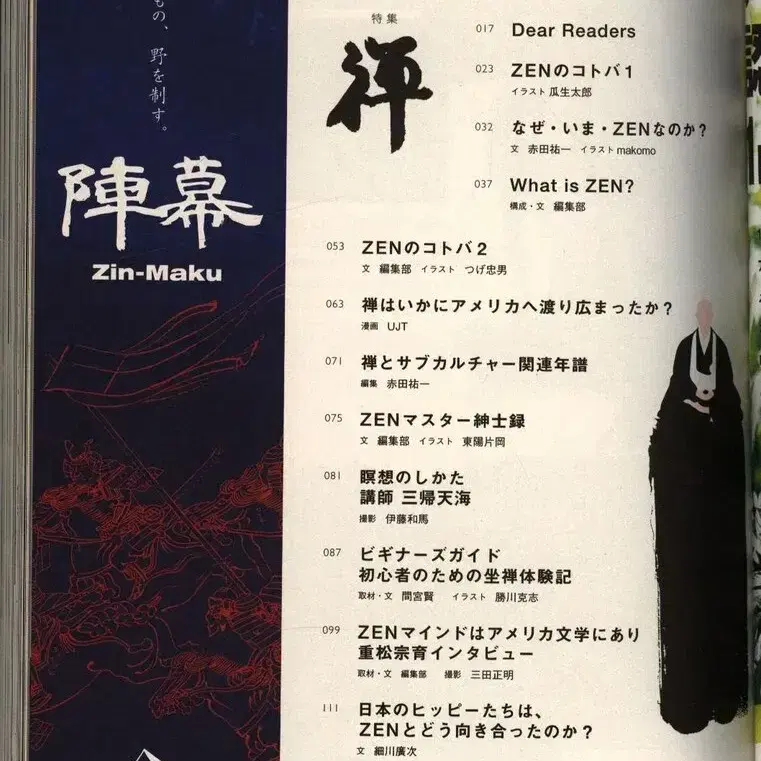 もの、野を制す。
陣幕
Zin-Maku
特集
禅
017 Dear Readers
023 ZENのコトバ1
イラスト 瓜生太郎
032 なぜ・いま・ZENなのか?
文 赤田祐一 イラスト makomo
037 What is ZEN?
構成・文 編集部
053 ZENのコトバ2
文 編集部 イラスト つげ忠男
063 禅はいかにアメリカへ渡り広まったか?
漫画 UJT
071 禅とサブカルチャー関連年譜
編集 赤田祐一
075 ZENマスター紳士録
文 編集部 イラスト 東陽片岡
081 瞑想のしかた
講師 三帰天海
撮影 伊藤和馬
087 ビギナーズガイド
初心者のための坐禅体験記
取材・文 間宮賢 イラスト 勝川克志
099 ZENマインドはアメリカ文学にあり
重松宗育インタビュー
取材・文 編集部 撮影 三田正明
111 日本のヒッピーたちは、
ZENとどう向き合ったのか?
文 細川廣次